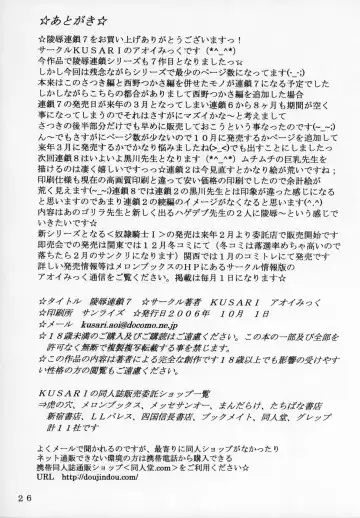 ☆あとがき☆
☆陵辱連鎖７をお買い上げありがとうございますっ！
サークルＫＵＳＡＲＩのアオイみっくです（*^_^*）
今作品で陵辱連鎖シリーズも７作目となりましたっ☆
しかし今回は残念ながらシリーズで最少のページ数になってます(-_-;)
本来はこのさつき編と西野つかさ編を併せたモノが連鎖７になる予定でした
しかしながらこちらの都合がありまして西野つかさ編を追加した場合
連鎖７の発売日が来年の３月となってしまい連鎖６から８ヶ月も期間が空く
事になってしまうのでそれはさすがにマズイかな～と考えまして
さつきの後半部分だけでも早めに販売しておこうという事なったのです(~_~;)
んで～でもさすがにページ数が少ないので１０月に発売するかページを追加して
来年３月に発売するかでかなり悩みましたね(>_<)でも出すことにしましたっ
次回連鎖８はいよいよ黒川先生となります！ ムチムチの巨乳先生を
描けるのは凄く嬉しいですっっ☆連鎖２は今見直すとかなり絵が荒いですね；
印刷仕様も現在の高画質印刷と違って安い価格の印刷でしたので余計絵が
荒く見えます(~_~;)連鎖８では連鎖２の黒川先生とは印象が違った感じになる
と思いますのであまり連鎖２の続編のイメージがなくなるかと思います
内容はあのゴリラ先生と新しく出るハゲデブ先生の２人に陵辱～という感じで
いきたいです☆
新シリーズとなる＜奴隷騎士Ⅰ＞の発売は来年２月より委託店で販売開始です
即売会での発売は関東では１２月冬コミにて（冬コミは落選率めちゃ高いので
落ちたら２月のサンクリになります）関西では１月のコミトレにて発売です
詳しい発売情報等はメロンブックスのＨＰにあるサークル情報版の
アオイみっく通信をご覧ください。掲載は毎月１日になります☆
☆タイトル 陵辱連鎖７ ☆サークル著者 ＫＵＳＡＲＩ アオイみっく
☆印刷所 サンライズ ☆発行日２００６年 １０月 １日
☆メール kusari.aoi@docomo.ne.jp
☆１８歳未満のご購入及びご購読はご遠慮ください。この本の一部及び全部を
許可なく無断で複製複写転載する事を禁じます。
☆この作品の内容は著者による完全な創作です１８歳以上でも影響の受けやす
い性格の方の閲覧もご遠慮ください。
ＫＵＳＡＲＩの同人誌販売委託ショップ一覧
⇒虎の穴、メロンブックス、メッセサンオー、まんだらけ、たちばな書店
新宿書店、ＬＬパレス、四国信長書店、ブックメイト、同人堂、グレップ
計１１社です
よくメールで聞かれるのですが、最寄りに同人ショップがなかったり
ネット通販できない環境の方は携帯電話から購入できる
携帯同人誌通販ショップ＜同人堂.com＞をご利用ください☆
URL http://doujindou.com/
２６